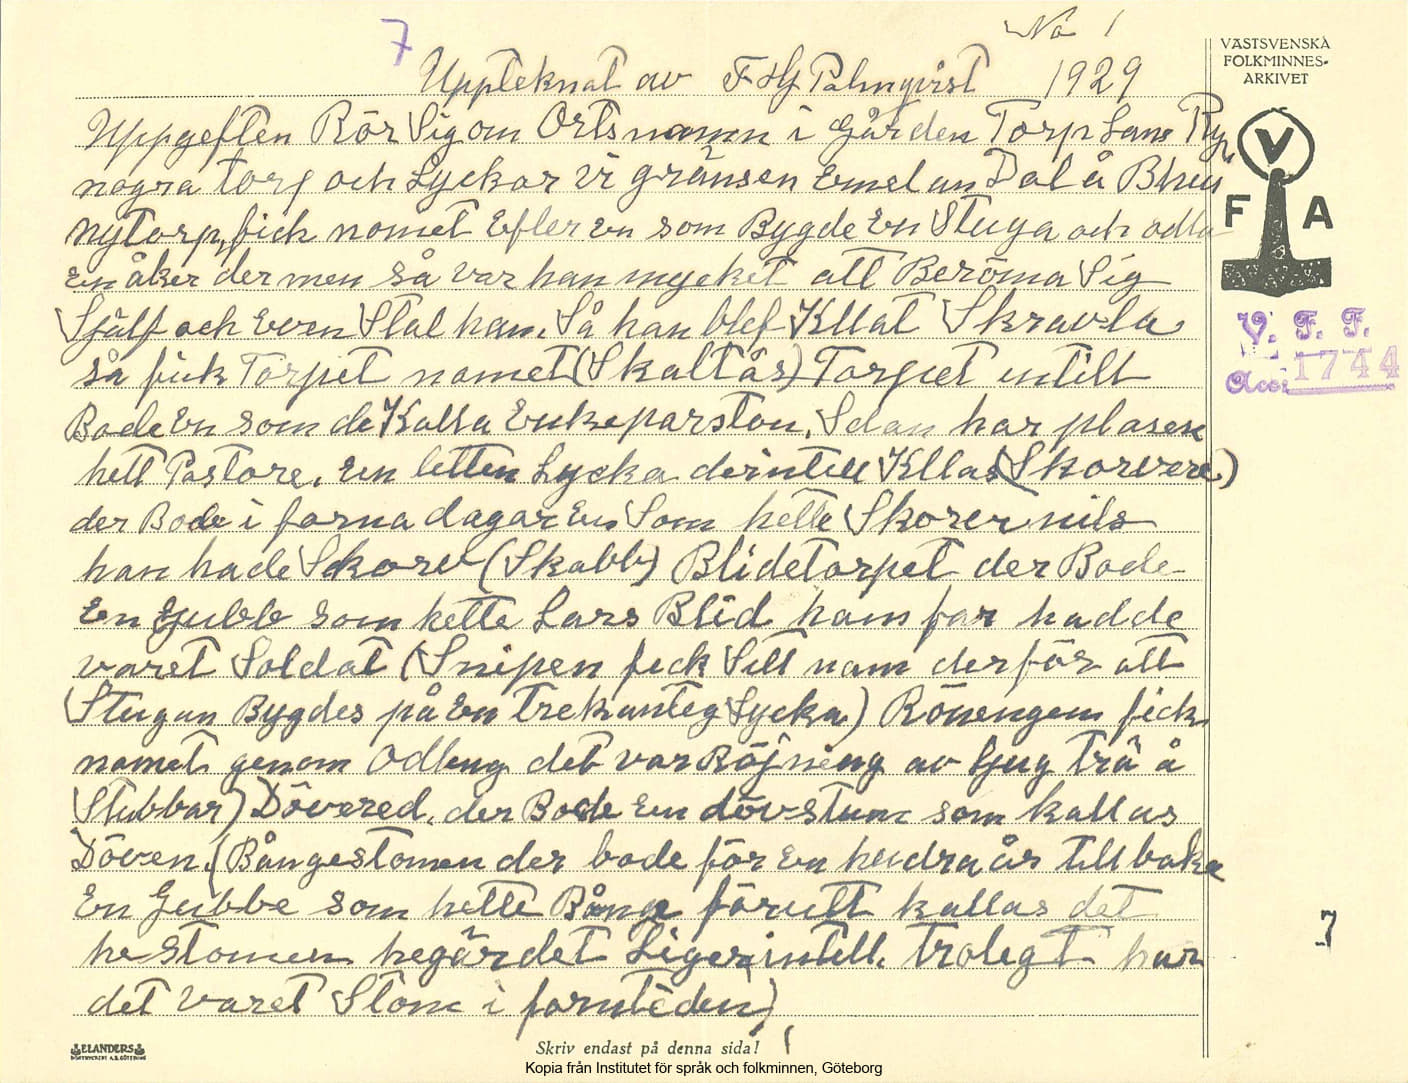 No 1
7
Uppteknat av F Hj Palmqvist 1929
VÄSTSVENSKA
FOLKMINNES-
ARKIVET
Uppgeften Rör Sig om Ortsnamn i Gården Torp Lane Ry,
nogra torp och Lyckor vi gränsen emelan Dal å Bhus
Nytorp, fick nomet Efter en som Bygde En Stuga och odla
En åker der men så var han mycket att Beröma Sig
V
F A
Sjålf och Even Stal han. Så han blef Kllat Skravla
så fick Torpet nomet (Skaltås) Torpet intill
V. F. F.
Acc. 1744
Bode En som de Kalla Enkeparston, Sdan har plasen
hett Pastore. en letten Lycka derintell Kllas (Skorvere)
der Bode i forna dagar En Som hette Skorer nils
han hade Skorv (Skabb) Blidetorpet der Bode
En Gubb som hette Lars Blid hans far hadde
varet Soldat (Snipen feck Sitt nam derför att
Stugan Bygdes på En trekanteg Lycka) Rönengen fick
namet genom Odleng det var Röjneng av ljug trä å
Stubbar) Dövered, der Bode En dövstum som kallas
Döven. (Bångestomen der bode för En hudra år tillbaka
En Gubbe som hette Bånge förutt kallas det
he Stomen hegärdet Liger intill. trolegt har
7
det varet Stom i forntiden)
ELANDERS
Skriv endast på denna sida!
Kopia från Institutet för språk och folkminnen, Göteborg